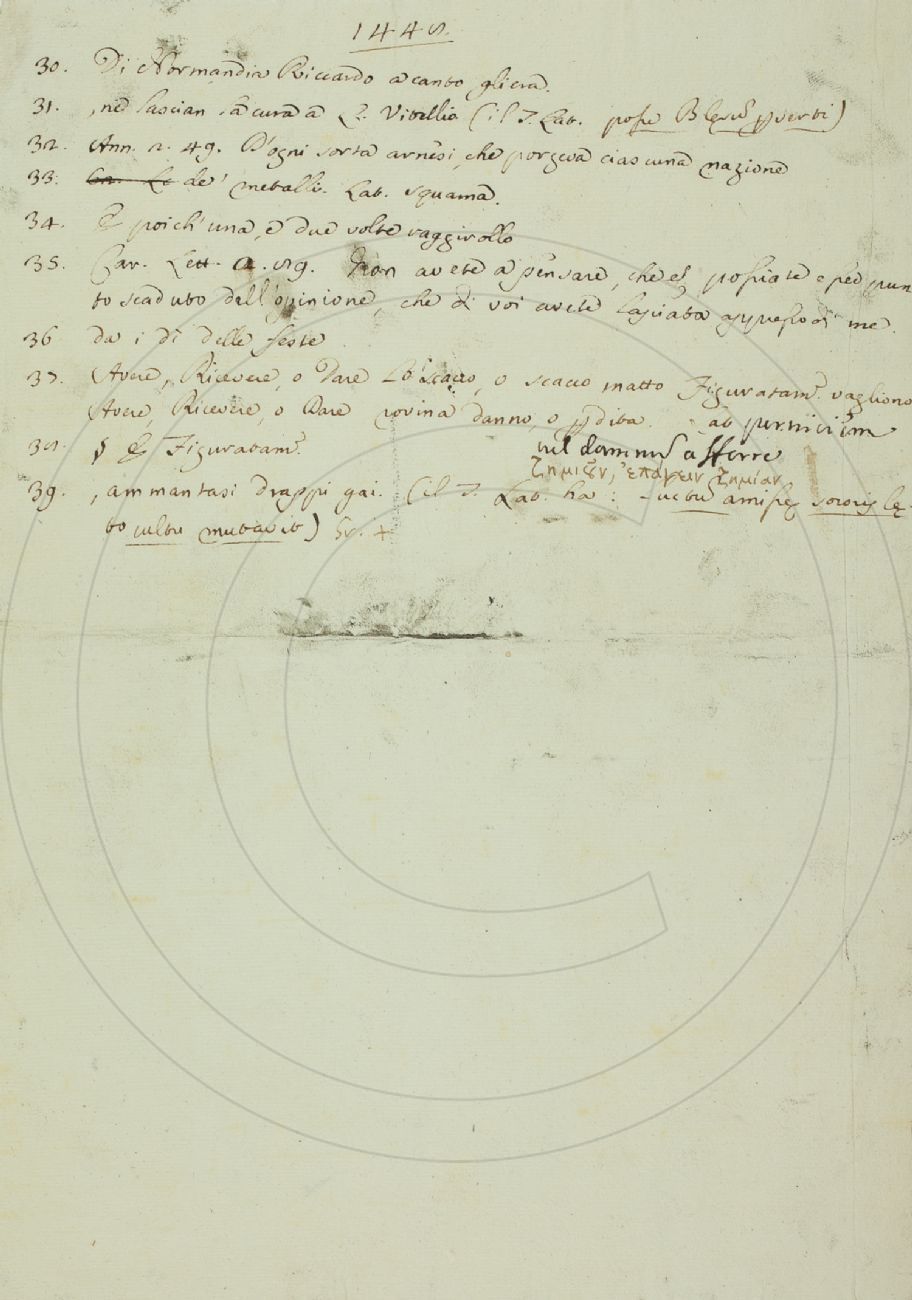 1448.
30. Di Normandia Riccardo a canto gli era.
31. , ne lascian la cura a L. Vitellio (il T. Lat. posse
32. Ann. 2. 49. D'ogni sorta arnesi, che porgeva ciascuna nazione
33. de' metalli. Lat. squama.
34. E poich' una, e due volte raggirollo
35. Car. Lett. 2. 89. Non avete a pensare, che el possiate esser pun
to scaduto dall'opinione, che di voi avete lasciata appresso di me.
36 da i dì delle feste.
37. Avere, Ricevere, o Dare lo scacco, o scacco matto Figuratam. vagliono
Avere, Ricevere, o Dare rovina danno, o pdita. at perniciem
vel damnum afferre
38. § E Figuratam.
ζημιοῦν, ἐπάγειν ζημίαν
39. , ammantasi drappi gai. (il T. Lat. ha: amisse
to cultu mutavit) Sr. +